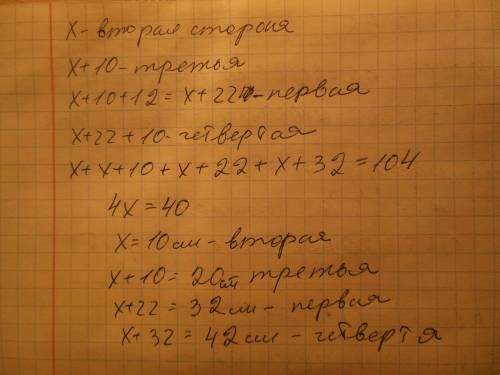 x - вторая сторона
x+10 - третья
x+10+12 = x+22 - первая
x+22+10 - четвертая
x+x+10+x+22+x+32=104
4x=40
x=10см - вторая
x+10=20см третья
x+22=32см - первая
x+32=42см - четвертя